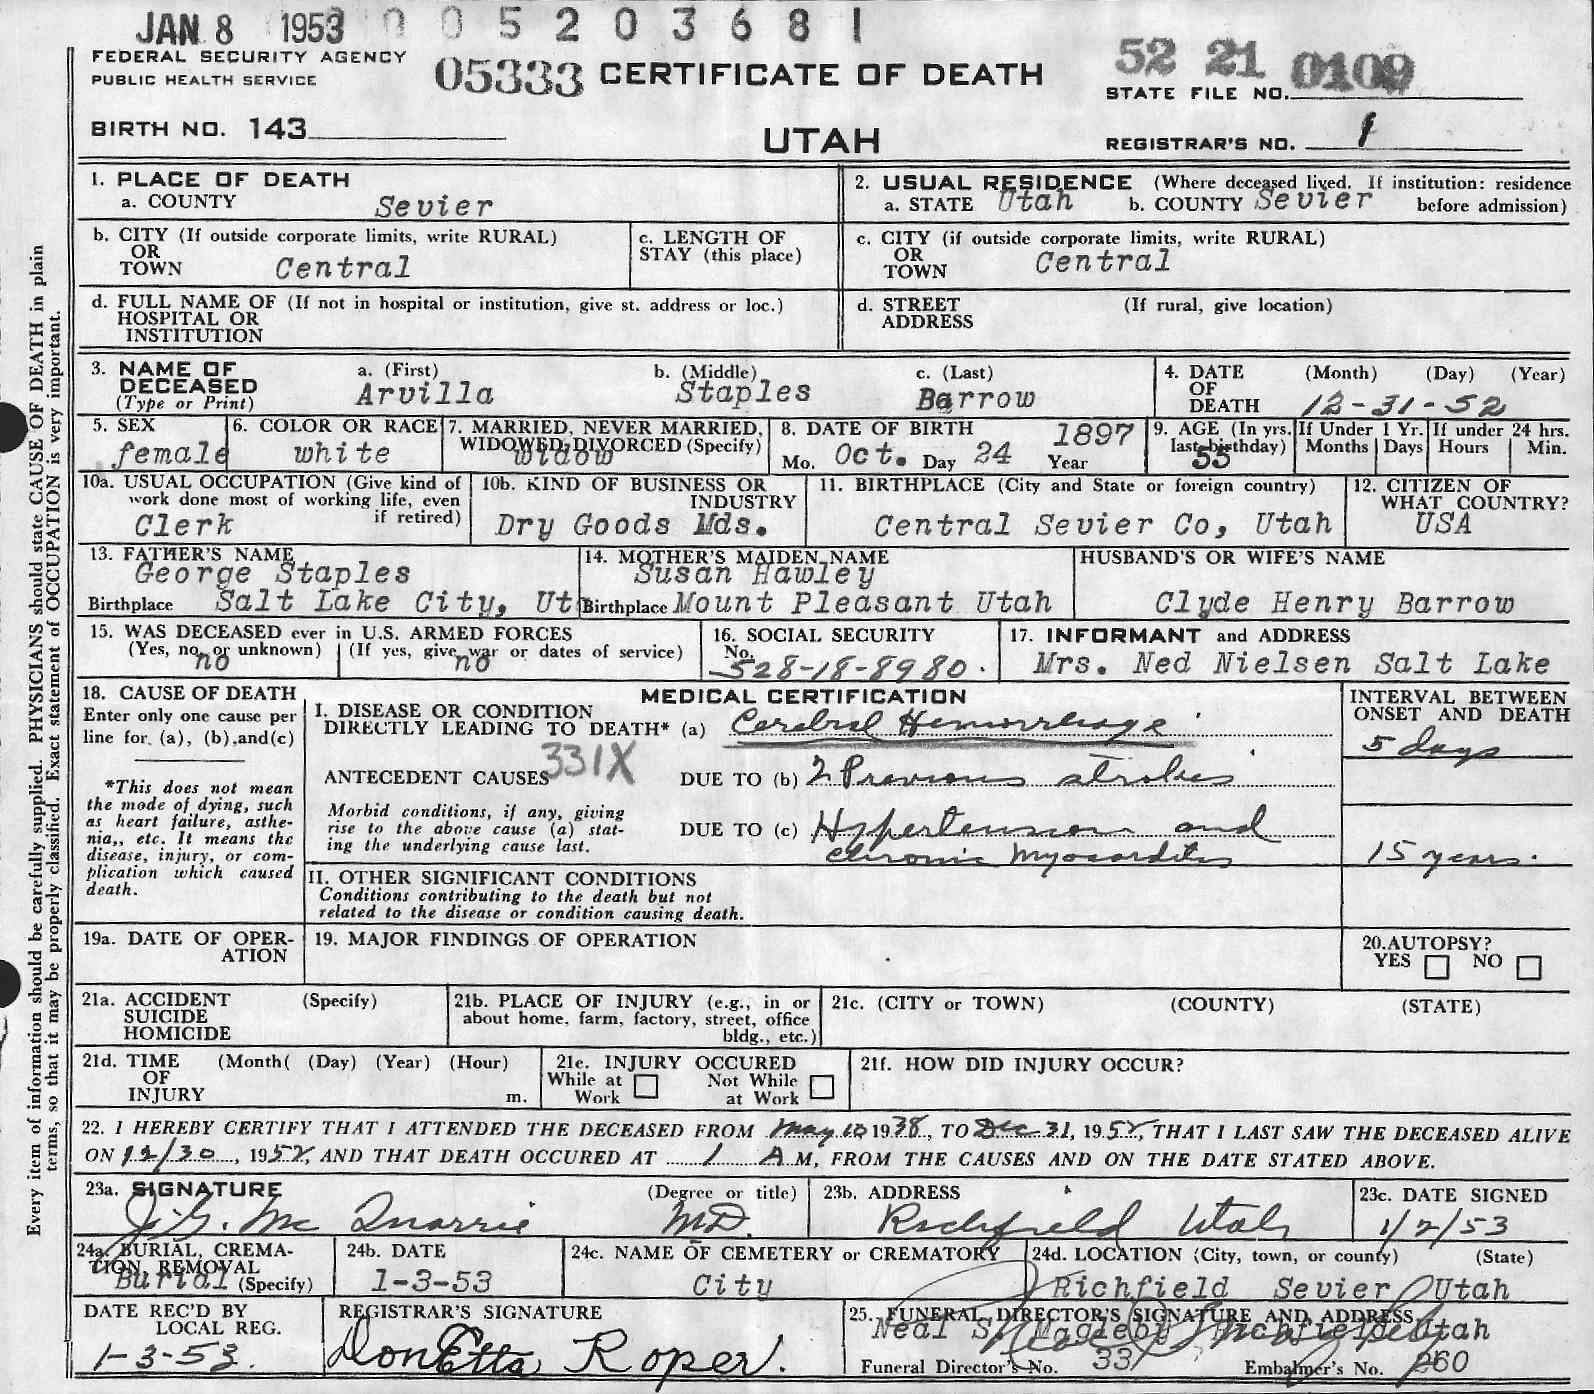 JAN 8 1953 0 0 5 2 0 3 6 8 1
FEDERAL SECURITY AGENCY
PUBLIC HEALTH SERVICE
05333 CERTIFICATE OF DEATH
52 21 0109
STATE FILE NO.
BIRTH NO. 143
UTAH
REGISTRAR'S NO. 1
1. PLACE OF DEATH
a. COUNTY Sevier
2. USUAL RESIDENCE (Where deceased lived. If institution: residence before admission)
a. STATE Utah b. COUNTY Sevier
b. CITY (If outside corporate limits, write RURAL)
OR
TOWN Central
c. LENGTH OF
STAY (this place)
c. CITY (if outside corporate limits, write RURAL)
OR
TOWN Central
d. FULL NAME OF (If not in hospital or institution, give st. address or loc.)
HOSPITAL OR
INSTITUTION
d. STREET (If rural, give location)
ADDRESS
3. NAME OF
DECEASED
(Type or Print)
a. (First) b. (Middle) c. (Last)
Arvilla Staples Barrow
4. DATE (Month) (Day) (Year)
OF
DEATH 12-31-52
5. SEX
female
6. COLOR OR RACE
white
7. MARRIED, NEVER MARRIED,
WIDOWED, DIVORCED (Specify)
widow
8. DATE OF BIRTH 1897
Mo. Oct. Day 24 Year
9. AGE (In yrs.
last birthday)
55
If Under 1 Yr.
Months Days
If under 24 hrs.
Hours Min.
10a. USUAL OCCUPATION (Give kind of
work done most of working life, even
if retired)
Clerk
10b. KIND OF BUSINESS OR
INDUSTRY
Dry Goods Mds.
11. BIRTHPLACE (City and State or foreign country)
Central Sevier Co, Utah
12. CITIZEN OF
WHAT COUNTRY?
USA
13. FATHER'S NAME
George Staples
Birthplace Salt Lake City, Ut
14. MOTHER'S MAIDEN NAME
Susan Hawley
Birthplace Mount Pleasant Utah
HUSBAND'S OR WIFE'S NAME
Clyde Henry Barrow
15. WAS DECEASED ever in U.S. ARMED FORCES
(Yes, no, or unknown) (If yes, give war or dates of service)
no no
16. SOCIAL SECURITY
No.
528-18-8980.
17. INFORMANT and ADDRESS
Mrs. Ned Nielsen Salt Lake
18. CAUSE OF DEATH
Enter only one cause per
line for (a), (b), and(c)
*This does not mean
the mode of dying, such
as heart failure, asthe-
nia,, etc. It means the
disease, injury, or com-
plication which caused
death.
MEDICAL CERTIFICATION
I. DISEASE OR CONDITION
DIRECTLY LEADING TO DEATH* (a) Cerebral Hemorrhage
331X
ANTECEDENT CAUSES DUE TO (b) 2 Previous strokes
Morbid conditions, if any, giving
rise to the above cause (a) stat-
ing the underlying cause last.
DUE TO (c) Hypertension and
chronic Myocarditis
INTERVAL BETWEEN
ONSET AND DEATH
5 days
15 years.
II. OTHER SIGNIFICANT CONDITIONS
Conditions contributing to the death but not
related to the disease or condition causing death.
19a. DATE OF OPER-
ATION
19. MAJOR FINDINGS OF OPERATION
20. AUTOPSY?
YES NO
21a. ACCIDENT (Specify)
SUICIDE
HOMICIDE
21b. PLACE OF INJURY (e.g., in or
about home, farm, factory, street, office
bldg., etc.)
21c. (CITY or TOWN) (COUNTY) (STATE)
21d. TIME (Month( (Day) (Year) (Hour)
OF
INJURY m.
21e. INJURY OCCURED
While at Work Not While at Work
21f. HOW DID INJURY OCCUR?
22. I HEREBY CERTIFY THAT I ATTENDED THE DECEASED FROM May 10 1938, TO Dec 31, 1952, THAT I LAST SAW THE DECEASED ALIVE
ON 12/30, 1952, AND THAT DEATH OCCURED AT 1 A M, FROM THE CAUSES AND ON THE DATE STATED ABOVE.
23a. SIGNATURE (Degree or title)
J. G. Mc Quarrie M.D.
23b. ADDRESS
Richfield Utah
23c. DATE SIGNED
1/2/53
24a. BURIAL, CREMA-
TION, REMOVAL
Burial (Specify)
24b. DATE
1-3-53
24c. NAME OF CEMETERY or CREMATORY
City
24d. LOCATION (City, town, or county) (State)
Richfield Sevier Utah
DATE REC'D BY
LOCAL REG.
1-3-53.
REGISTRAR'S SIGNATURE
DonEtta Roper.
25. FUNERAL DIRECTOR'S SIGNATURE AND ADDRESS
Neal S. Magleby Richfield Utah
Funeral Director's No. 337 Embalmer's No. 260
Every item of information should be carefully supplied. PHYSICIANS should state CAUSE OF DEATH in plain
terms, so that it may be properly classified. Exact statement of OCCUPATION is very important.